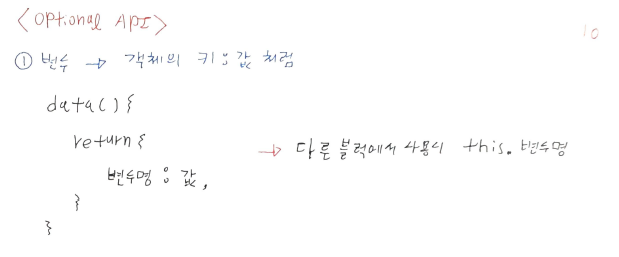 <Optional API>
10
①변수 → 객체의 키:값 처럼
data(){
return{
→ 다른 블럭에서 사용시 this.변수명
변수명 : 값,
}
}